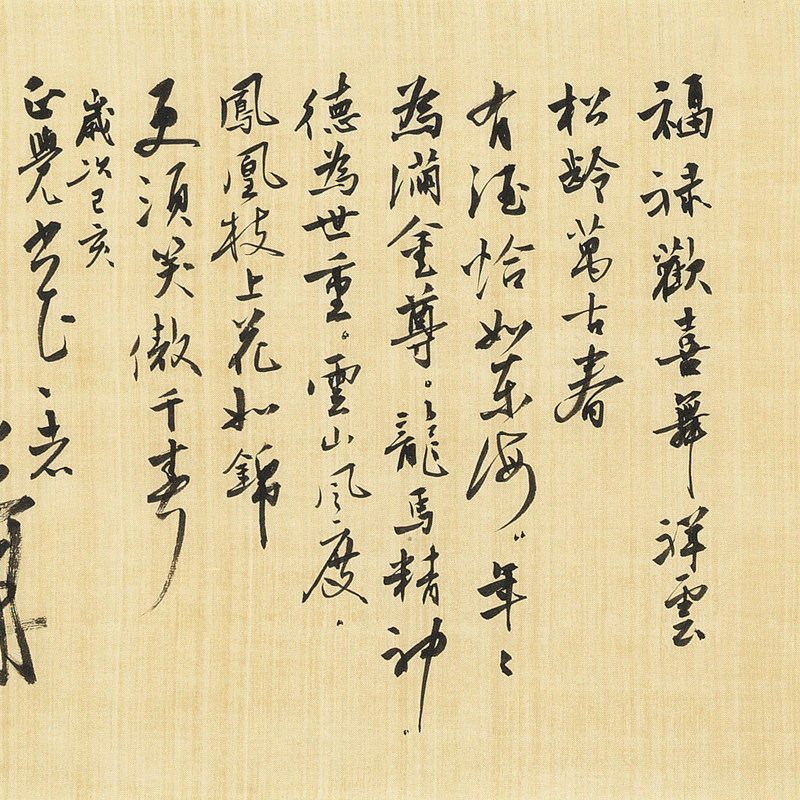 福祿歡喜舞祥雲
松齡萬古春
有酒恰如東海〃年〻
為滿金尊。龍馬精神〃
德為世重。雲山風度〃
鳳凰枝上花如錦
更須笑傲千壽
歲次己亥
正覺